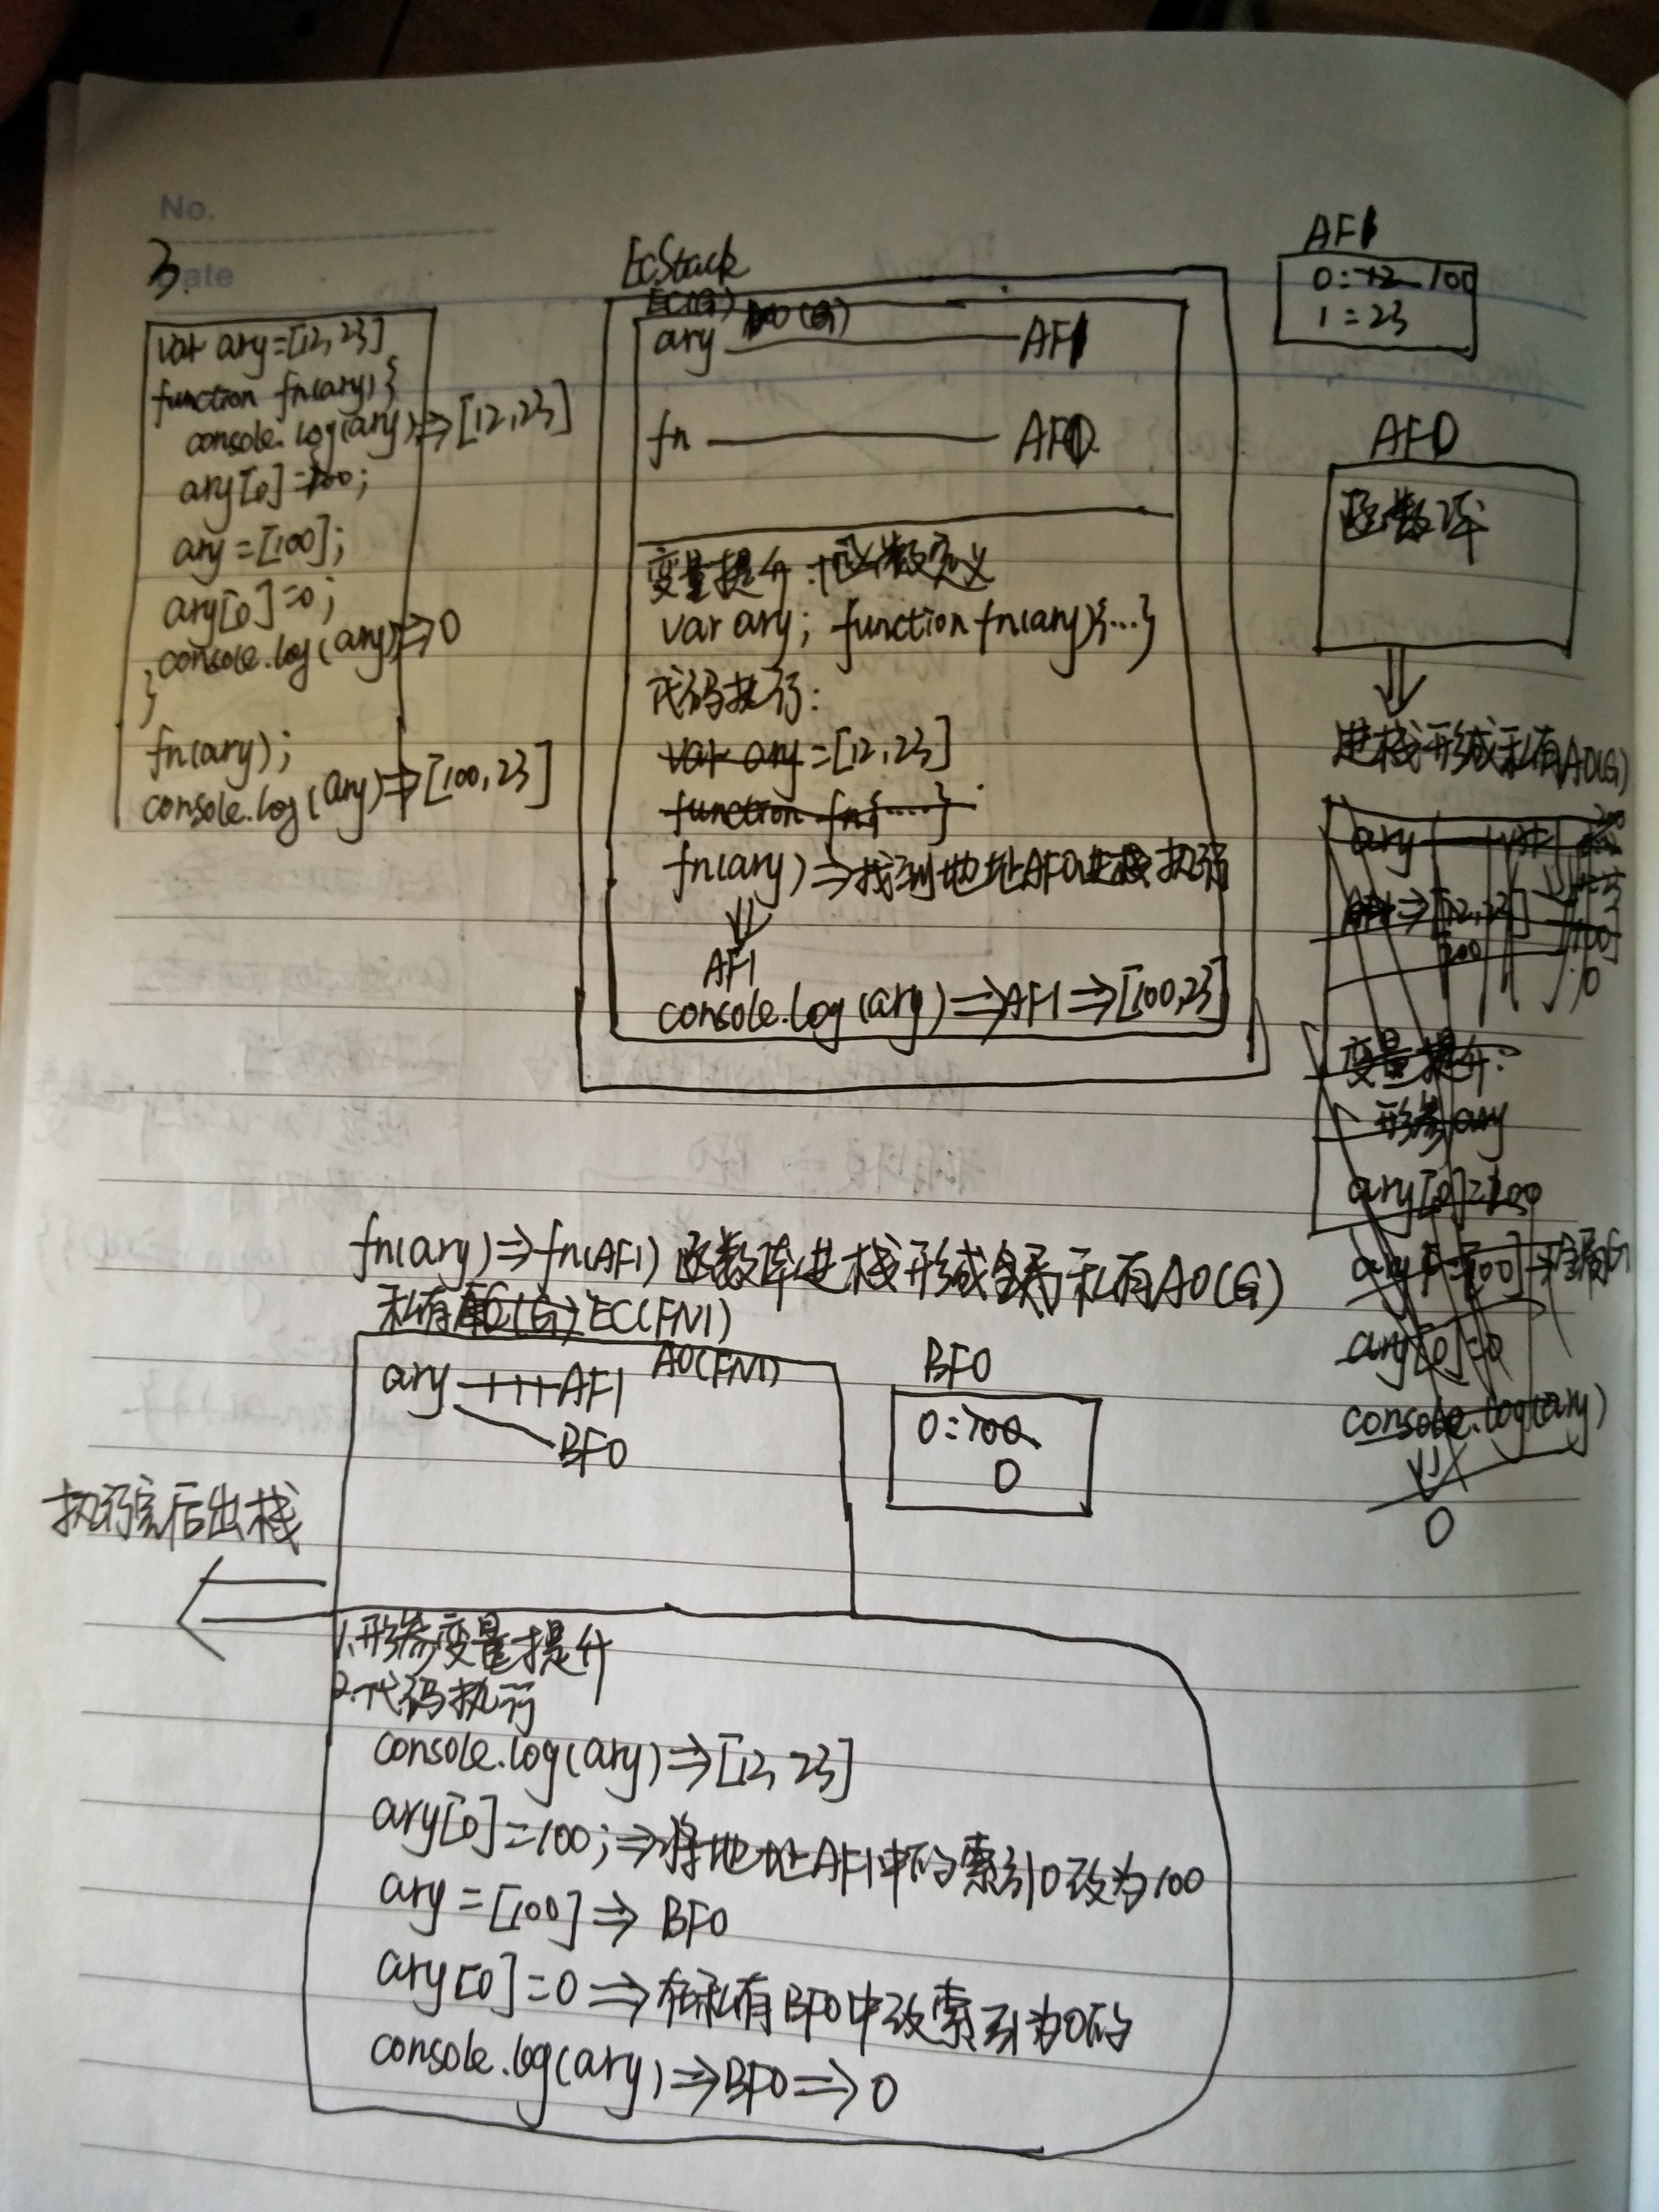 No.
Date
3.
var ary=[12,23]
function fn(ary){
console.log(ary)⇒[12,23]
ary[0]=100;
ary=[100];
ary[0]=0;
console.log(ary)⇒0
}
fn(ary);
console.log(ary)⇒[100,23]
EcStack
EC(G)
VO(G)
ary AF1
fn AF0
变量提升:函数定义
var ary; function fn(ary){...}
代码执行:
var ary=[12,23]
function fn{....}
fn(ary)⇒找到地址AF0进栈执行
AF1
console.log(ary)⇒AF1⇒[100,23]
AF1
0:12 100
1=23
AF0
函数体
进栈形成私有AO(G)
ary
[12,23]
100
0
变量提升:
形参ary
ary[0]=100
ary[0]=0
console.log(ary)
0
fn(ary)⇒fn(AF1) 函数体进栈形成全局私有AO(G)
私有 EC(FN1)
AO(FN1)
ary AF1
BF0
BF0
0:100
0
执行完后出栈
1.形参变量提升
2.代码执行
console.log(ary)⇒[12,23]
ary[0]=100;⇒将地址AF1中的索引0改为100
ary=[100]⇒BF0
ary[0]=0⇒在私有BF0中改索引为0的
console.log(ary)⇒BF0⇒0